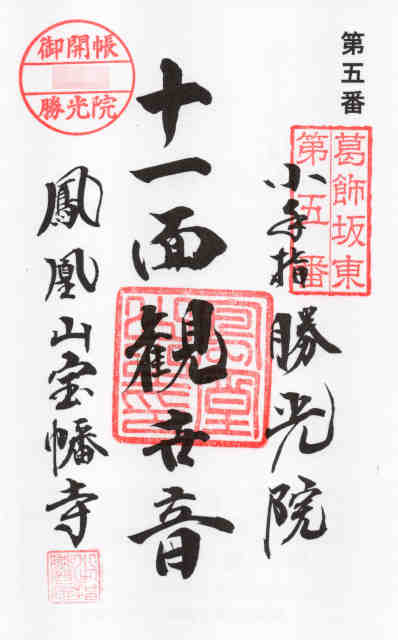 第五番
葛飾坂東
第五番
小手指 勝光院
十一面観世音
鳳凰山宝幡寺
御開帳
勝光院